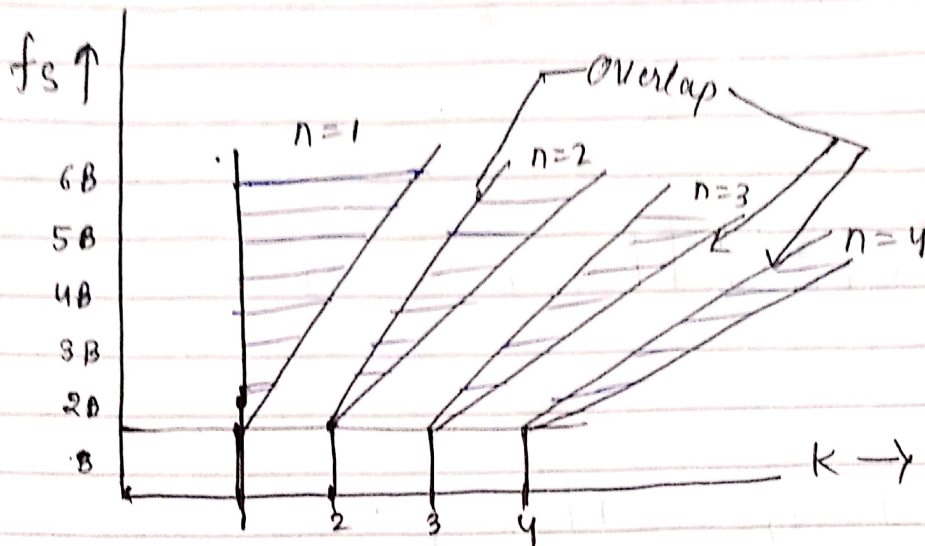 fs ↑
Overlap
n = 1
n = 2
n = 3
n = 4
6B
5B
4B
3B
2B
B
K →
1
2
3
4